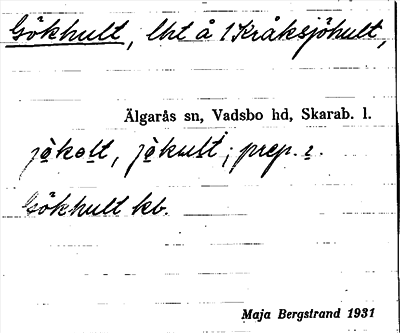 Gökhult, lht å 1 Kråksjöhult,
Älgarås sn, Vadsbo hd, Skarab. l.
jö̀kolt, jö̀kult; prep. i.
Gökhult kb.
Maja Bergstrand 1931